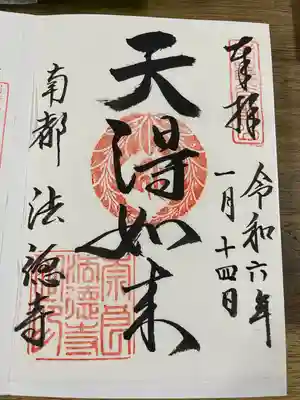 奉拝
令和六年
一月十四日
天得如来
南都 法徳寺
奈良
法徳寺